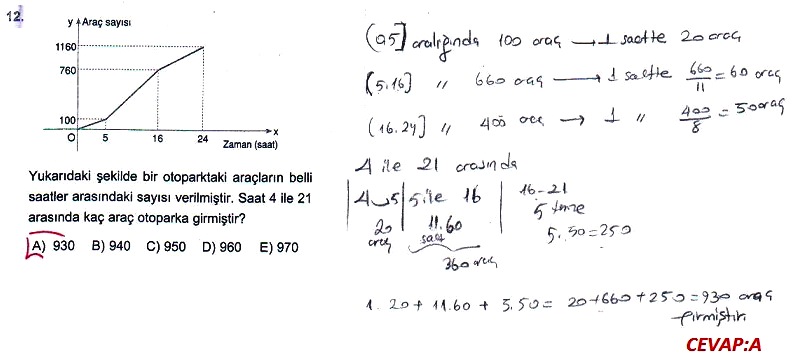 12.
y Araç sayısı
1160
760
100
O 5 16 24 x
Zaman (saat)
Yukarıdaki şekilde bir otoparktaki araçların belli
saatler arasındaki sayısı verilmiştir. Saat 4 ile 21
arasında kaç araç otoparka girmiştir?
A) 930 B) 940 C) 950 D) 960 E) 970
(0,5] aralığında 100 araç → 1 saatte 20 araç
(5,16] " 660 araç → 1 saatte 660/11 = 60 araç
(16,24] " 400 araç → 1 " 400/8 = 50 araç
4 ile 21 arasında
4-5 5 ile 16 16-21
20 araç 11.60 saat 5 tane
5.50=250
360 araç
1.20+11.60+5.50= 20+660+250=930 araç
girmiştir
CEVAP:A